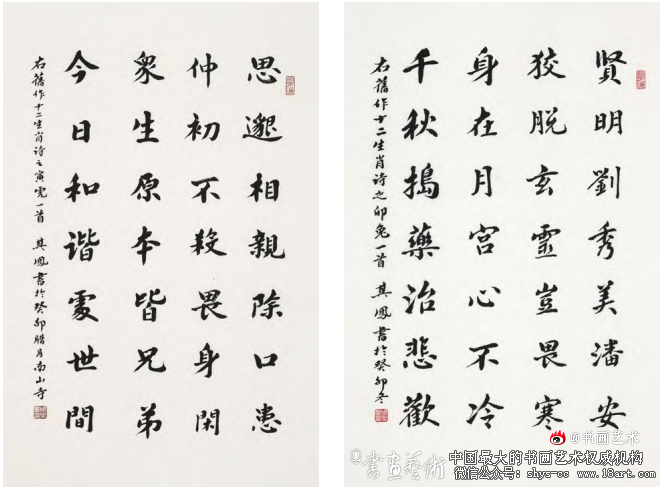 思邈相親除口患
仲初不殺畏身閑
衆生原本皆兄弟
今日和谐處世間
右舊作十二生肖诗之寅虎一首 其鳳書於癸卯腊月南山寺
賢明劉秀美潘安
狡脱玄靈豈畏寒
身在月宫心不冷
千秋搗藥治悲歡
右舊作十二生肖诗之卯兔一首 其鳳書於癸卯冬
@书画艺术
書畫藝術
中国最大的书画艺术权威机构
微信公众号: shys-cc www.18art.com